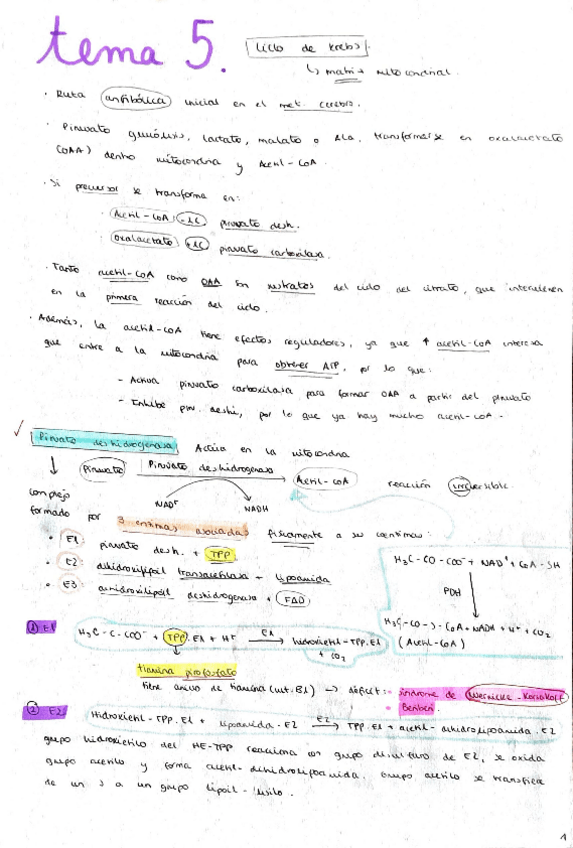 tema 5.
Ciclo de Krebs.
↳ matriz mitocondrial.
· Ruta anfibólica inicial en el met. cerebro.
· Piruvato glucólisis, lactato, malato o Ala, transformarse en oxalacetato
(OAA) dentro mitocondria y Acetil-CoA.
· Si precursor se transforma en:
· Acetil-CoA -1C piruvato desh.
· Oxalacetato +1C piruvato carboxilasa.
· Tanto acetil-CoA como OAA son sustratos del ciclo del citrato, que intervienen
en la primera reacción del ciclo.
· Además, la acetil-CoA tiene efectos reguladores, ya que ↑ acetil-CoA interesa
que entre a la mitocondria para obtener ATP, por lo que:
- Activa piruvato carboxilasa para formar OAA a partir del piruvato
- Inhibe pir. deshi, por lo que ya hay mucho acetil-CoA.
✓ Piruvato deshidrogenasa Actúa en la mitocondria
Piruvato Piruvato deshidrogenasa Acetil-CoA reacción irreversible.
NAD⁺ NADH
complejo
formado por 3 enzimas asociadas físicamente a su coenzimas:
· E1: piruvato desh. + TPP
· E2: dihidrolipoil transacetilasa - lipoamida
· E3: dihidrolipoil deshidrogenasa + FAD
H₃C-CO-COO⁻ + NAD⁺ + CoA-SH
PDH
H₃C-CO-S-CoA + NADH + H⁺ + CO₂
(Acetil-CoA)
① E1 H₃C-C-COO⁻ + TPP.E1 + H⁺ E1 hidroxietil-TPP.E1
+ CO₂
tiamina pirofosfato
tiene anillo de tiamina (vit. B1) → déficit: · síndrome de Wernicke-Korsakoff
· Beriberi.
② E2 Hidroxietil-TPP.E1 + lipoamida.E2 E2 TPP.E1 + acetil-dihidrolipoamida.E2
grupo hidroxietilo del HE-TPP reacciona con grupo disulfuro de E2, se oxida
grupo acetilo y forma acetil-dihidrolipoamida. Grupo acetilo se transfiere
de un S a un grupo lipoil-lisilo.
1